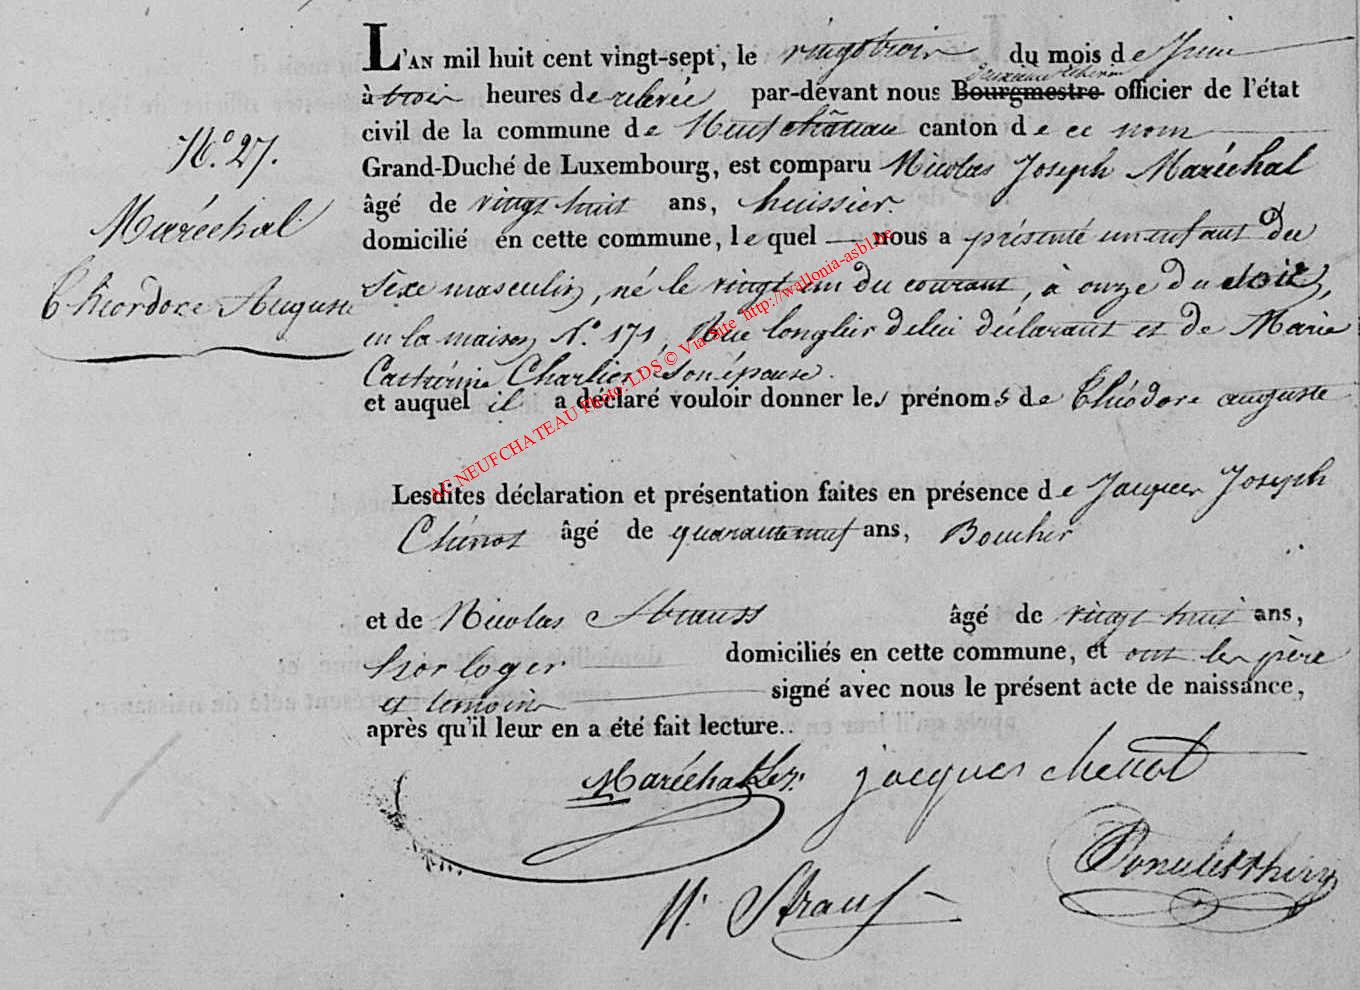 L'AN mil huit cent vingt-sept, le vingt trois du mois de Juin
deuxième échevin
à trois heures de relevée par-devant nous Bourgmestre officier de l'état
civil de la commune de Neufchâteau canton de ce nom
Grand-Duché de Luxembourg, est comparu Nicolas Joseph Maréchal
âgé de vingt huit ans, huissier.
domicilié en cette commune, lequel — nous a présenté un enfant du
sexe masculin, né le vingt un du courant, à onze du soir,
en la maison N.° 171, Rue longlier de lui déclarant et de Marie
Catherine Charlier son épouse.
et auquel il a déclaré vouloir donner les prénoms de Théodore auguste
N.° 27.
Maréchal
Théordore Auguste
Lesdites déclaration et présentation faites en présence de Jacques Joseph
Chénot âgé de quarante neuf ans, Boucher
et de Nicolas Strauss âgé de vingt huit ans,
horloger domiciliés en cette commune, et ont les père
et témoins signé avec nous le présent acte de naissance,
après qu'il leur en a été fait lecture..
Maréchal jacques chenot
N. Strauss
AC NEUFCHATEAU Photo: LDS © Via Site http://wallonia-asbl.be